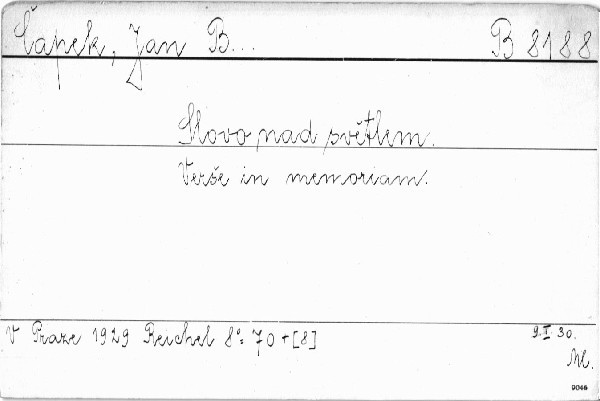 Čapek, Jan B... B 8188
Slovo nad světlem.
Verše in memoriam.
V Praze 1929 Reichel 8°: 70 + [8] 9.I.30.
Ml.
9046